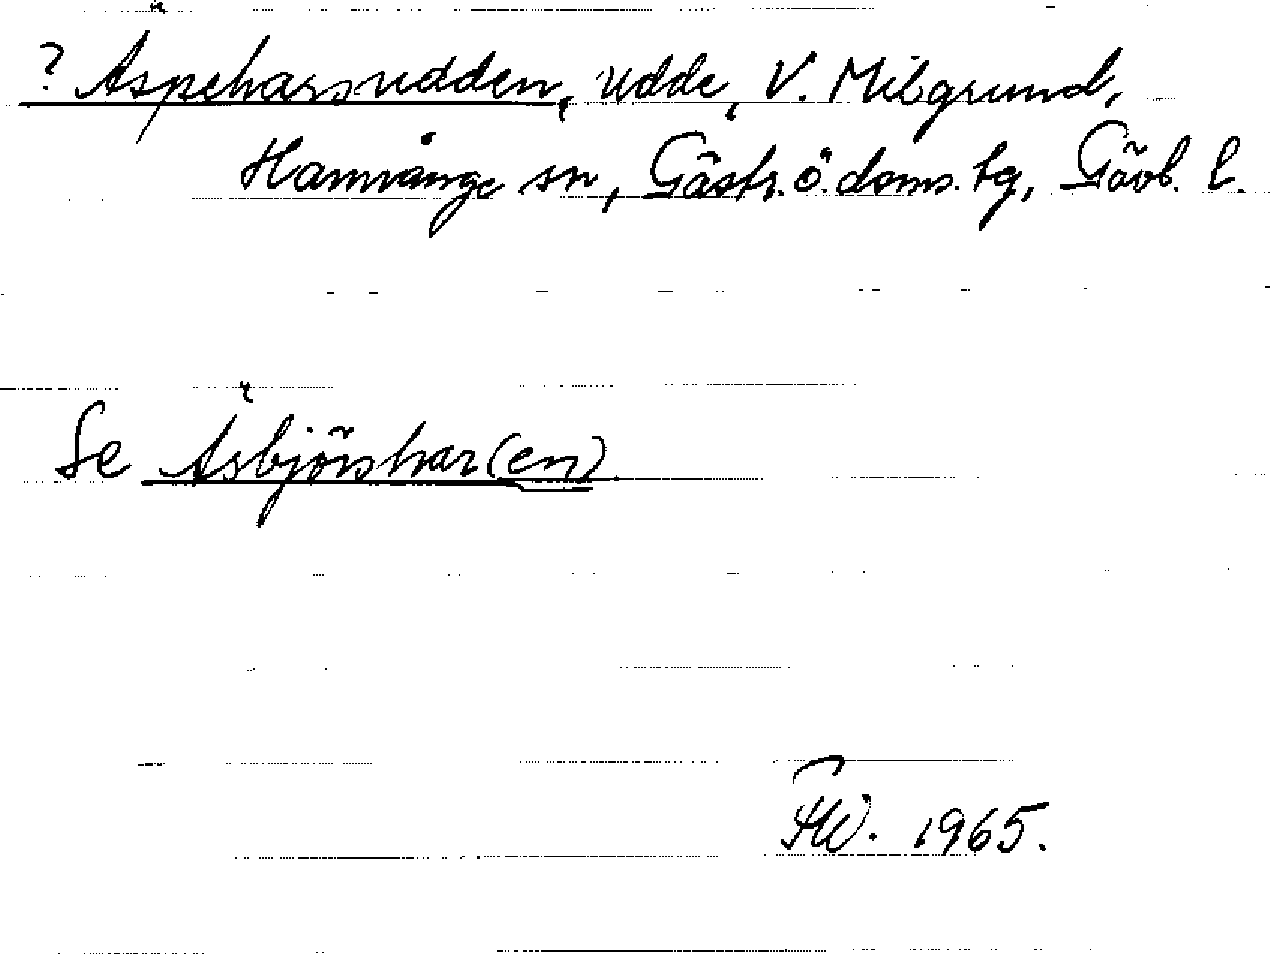 ? Aspeharsudden, udde, V. Milgrund,
Hamrånge sn, Gästr. ö. doms. tg, Gävl. l.
Se Äsbjörshar(en)
HW. 1965.